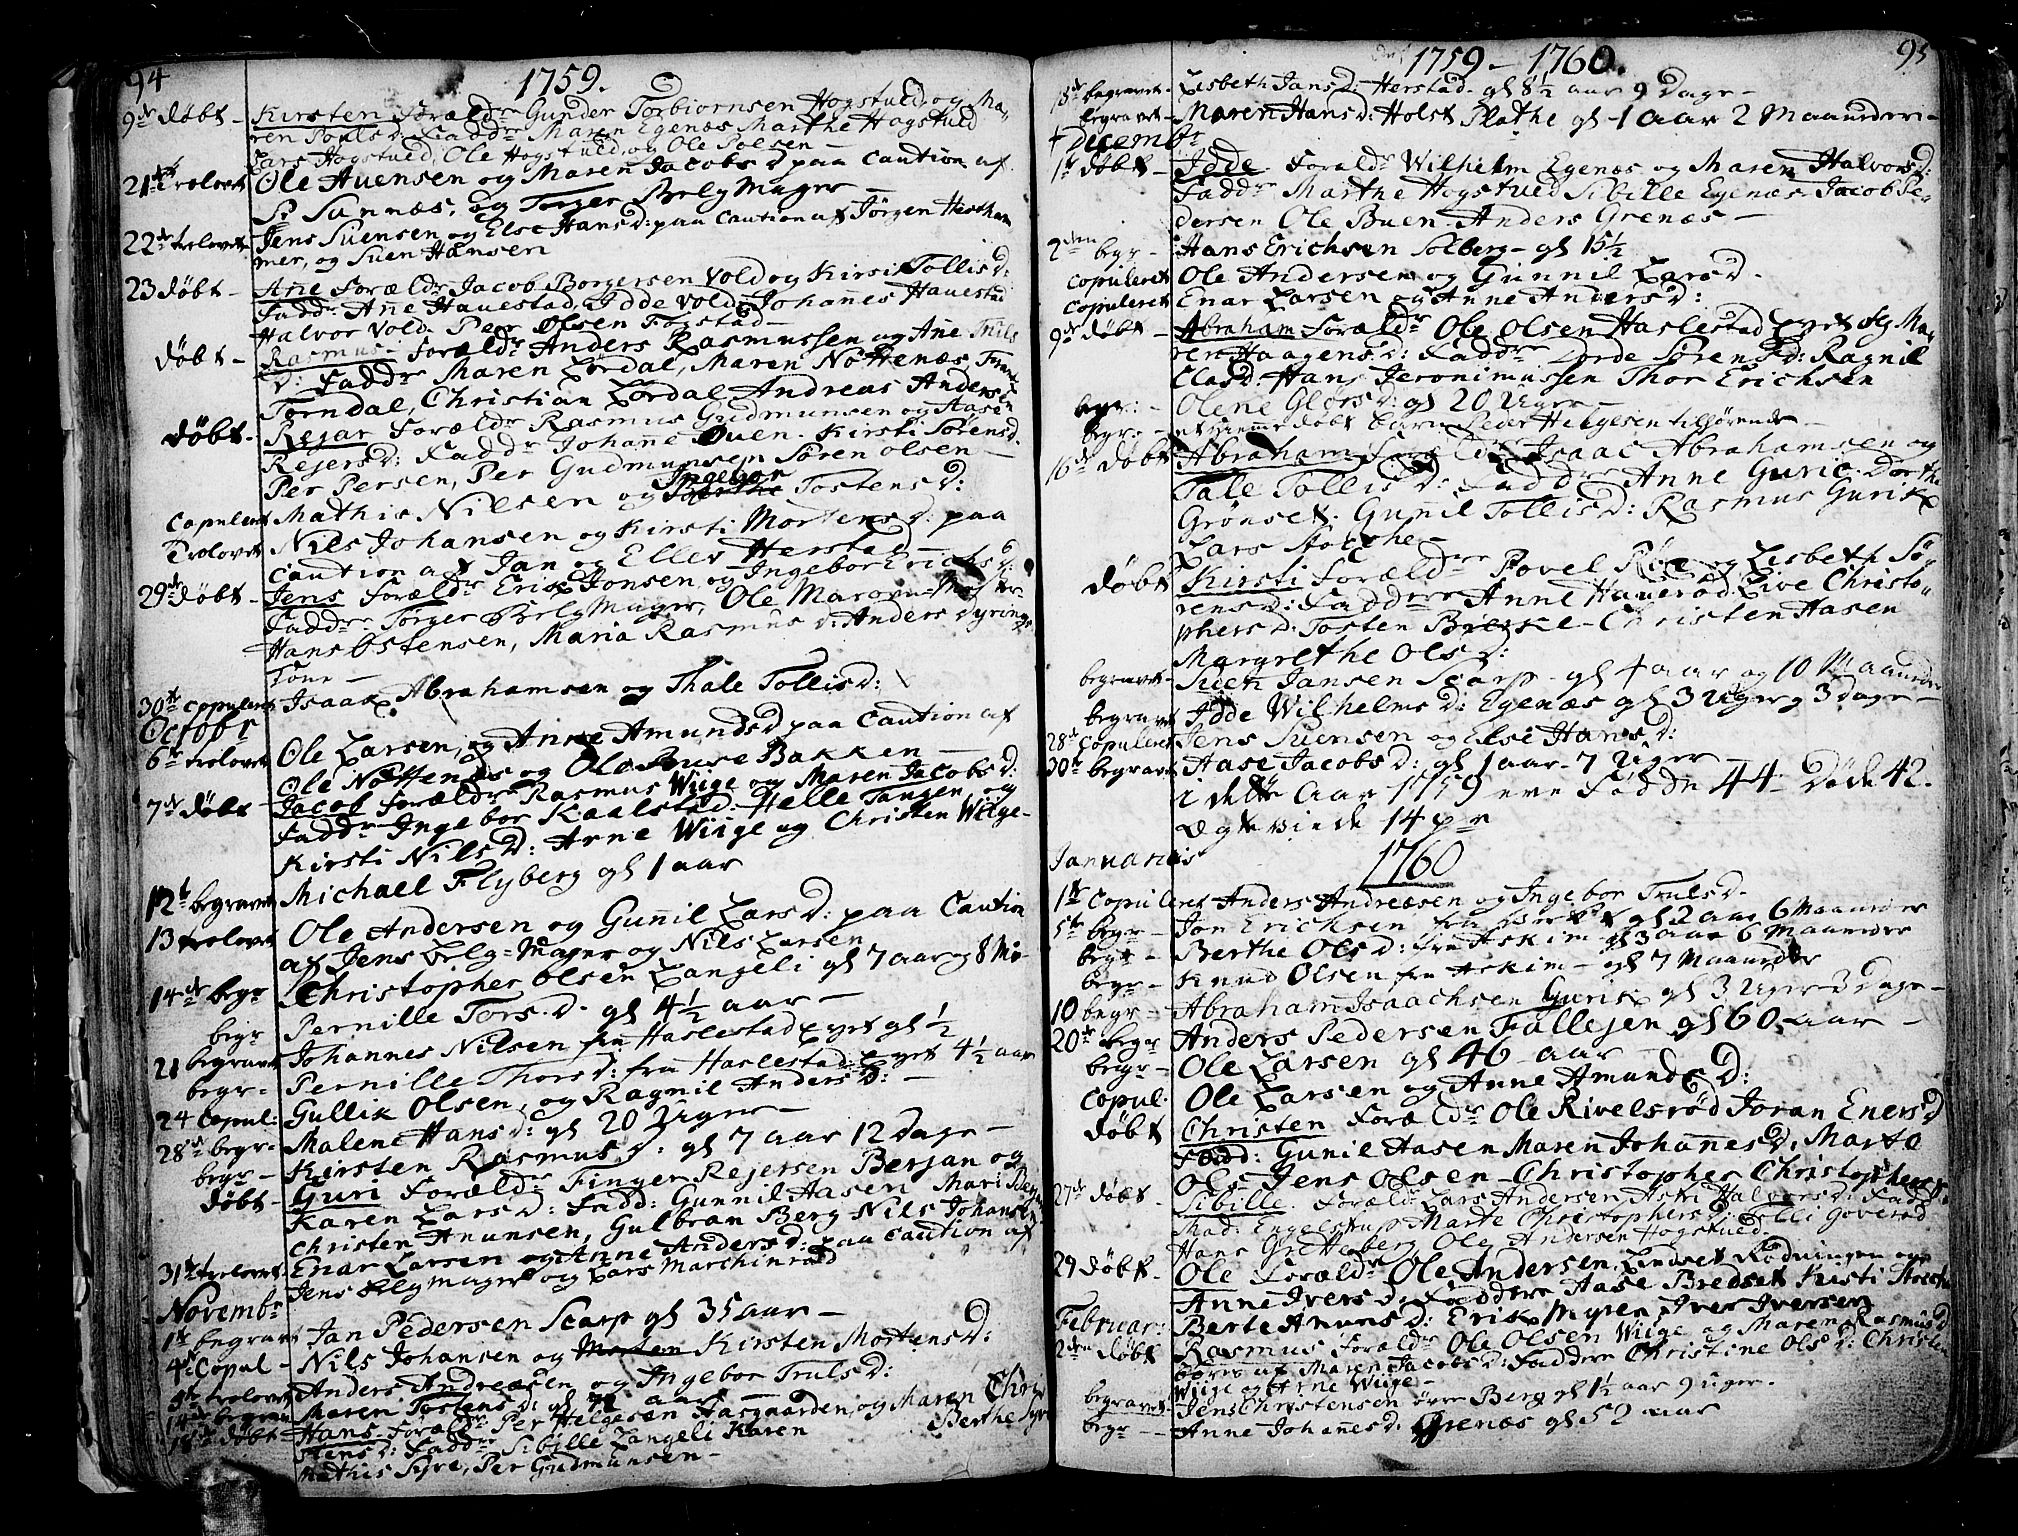 94
1759.
9de døbt - Kirsten Forældr Gunder Torbiornsen Hogstuld og Ma-
ren Pouls D: Faddr Maren Egenæs Marthe Hogstuld
Lars Hogstuld, Ole Hogstuld og Ole Polsen -
21 trolovet Ole Auensen og Maren Jacobs D paa Caution af
P. Sannæs, og Torger Belg Mager -
22 trolovet Jens Suensen og Else Hans D: paa Caution af Jørgen Hestham
mer, og Suen Hansen
23 døbt - Ane Forældr Jacob Borgersen Vold og Kirsti Tollis D:
Fadd: Ane Hauestad, Idde Vold Johannes Hauestad
Halvor Vold Per Olsen Fogstad -
døbt - Rasmus Forældr Anders Rasmussen og Ane Truls
D: Faddr Maren Lørdal, Maren Nøttenæs,
Torndal, Christian Lørdal Andreas Andersen
døbt - Rejar Forældr Rasmus Gudmunsen og Aase
Rejers D: Faddr Johanne Buen. Kirsti Sørens D.
Per Persen, Per Gudmunsen Søren Olsen -
Copuleret Mathis Nilsen og Ingebor Tostens D:
Trolovet Nils Johansen og Kirsti Mortens D: paa
Caution af Jan og Elles Herstad -
29de døbt - Jens Forældr Erix Jonsen og Ingebor Erichs D:
Faddr Torger Belg Mager, Ole
Hans Ostensen, Maria Rasmus D: Anders Dyrings
Tone -
30te Copuleret Isaak Abrahamsen og Thale Tollis D:
Octobr
6te trolovet Ole Larsen, og Anne Amunds D paa Caution af
Ole Nøttenæs og Ole Buse Bakken -
7de døbt Jacob Forældr Rasmus Wiige og Maren Jacobs D:
Faddr Ingebor Kaalstad: Helle Tangen og
Kirsti Nils D: Arne Wiige og Christen Wiige -
12te begravet Michael Flyberg gl 1 aar
13 trolovet Ole Andersen og Gunil Lars D: paa Caution
af Jens Belg-Mager og Nils Larsen
14de begr Christopher Olsen Langeli gl 7 aar og 8 Mo-
begr Pernille Tors D. gl 4½ aar -
21 begravet Johannes Nilsen fra Haslestad Eyet gl ½
begr - Pernille Thors D: fra Haslestad Eyet 4½ aar
24 Copul: Gullik Olsen, og Ragnil Anders D: -
28de begr - Malene Hans D: gl 20 Uger -
begr - Kirsten Rasmus D. gl 7 aar 12 Dage -
døbt - Guri Forældr Finger Rejersen Berjan og
Karen Lars D: Fadd: Gunnil Aasen Mari
Christen Anunsen, Gulbran Berg Nils Johansen
31te trolovet Enar Larsen og Anne Anders D: paa Caution af
Jens Belgmager og Lars Marchinrød
Novembr
1te begravet Jan Pedersen Scarp gl 35 aar -
4de Copul - Nils Johansen og Kirsten Mortens D:
trolovet Anders Andreæsen og Ingebor Truls D:
14de begravet Maren Tostens D: gl aar
18de døbt Hans Forældr Per Helgesen Aasgaarden, og Maren Chri
stens D: Faddr Sibille Langeli Karen Berthe Syre
Mathis Syre, Per Gudmunsen -
1759 - 1760. 95
18de begravet - Lisbeth Jans D: Herstad - gl 8½ aar 9 Dage -
begravet - Maren Hans D: Holst Plathe gl - 1 aar 2 Maaneder -
Decembr
1te døbt - Idde Forældr Wilhelm Egenæs og Maren Halvors D:
Faddr Marthe Hogstuld Sibille Egenæs - Jacob Pe-
dersen Ole Buen Anders Grenæs -
2den begr - Hans Erichsen Solberg - gl 15½
Copuleret Ole Andersen og Gunnil Lars D -
Copuleret Enar Larsen og Anne Anders D:
9de døbt - Abraham Forældr Ole Olsen Haslestad Eyet Og Ma-
ren Haagens D: Faddr Dorde Sørens D: Ragnil
Clas D: Hans Jeronimussen Thor Erichsen
begr: - Olene Glors D: gl 20 Uger -
begr - et hiemme døbt Barn Peder Helgesen tilhørende -
16de døbt Abraham Forældr Isaac Abrahamsen og
Tale Tollis D: Faddr Anne Gurie. Dorthe
Grønset. Gunil Tollis D: Rasmus Gurie
Lars -
døbt Kirsti Forældr Povel Røe og Lisbeth Sø-
rens D: Faddr Anne Hauerød Live Christo-
phers D: Tosten Bakke - Christen Hasen
Margrethe Ols D:
begravet - Suen Jansen Scarp - gl 4 aar og 10 Maaneder
begravet Idde Wilhelms D: Egenæs gl 3 Uger 3 Dage -
28de Copuleret Jens Suensen og Else Hans D:
30te begravet Aase Jacobs D: gl 1 aar - 7 Uger -
i dette Aar 1759 ere Fødde 44 - Døde 42.
Ægteviede 14 par
Januarius 1760
1te Copuleret Anders Andreæsen og Ingebor Truls D.
5te begr - Jon Ericksen fra gl 2 aar 6 Maaneder
begr - Berthe Ols D: fra Askim - gl 3 aar 6 Maaneder
begr - Knud Olsen fra Askim - gl 7 Maaneder
10 begr - Abraham Isaachsen Gurie gl 3 Uger 3 Dage -
20de begr Anders Pedersen Fallejen gl 60 - aar -
begr - Ole Larsen gl 46 - aar -
Copul: Ole Larsen og Anne Amunds D:
døbt Christen Forældr Ole Rivelsrød Joran Eners D
Fadd: Gunil Aasen Maren Johannes D: Marta
Ols D Jens Olsen - Christopher Christophersen
27de døbt - Sibille. Forældr Lars Andersen Astri Halvors D: Fadd
Mad: Engelstup Marte Christophers D: Tolli Goverød
Hans Gretteberg Ole Andersen Hogstuld -
29 døbt - Ole Forældr Ole Andersen Lindset Rødningen og
Anne Ivers D: Faddere Aase Bredset Kristi
Berte Anuns D: Erik Myren Iver Iversen
Februar:
2den døbt Rasmus Forældr Ole Olsen Wiige og Maren Rasmus D
baaren af Maren Jacobs D: Faddere Christine Ols D: Christen
Wiige og Arne Wiige -
begravet - Jens Christensen øvre Berg gl 1½ aar 9 Uger -
begr - Anne Johannes D: Grenæs gl 52 aar